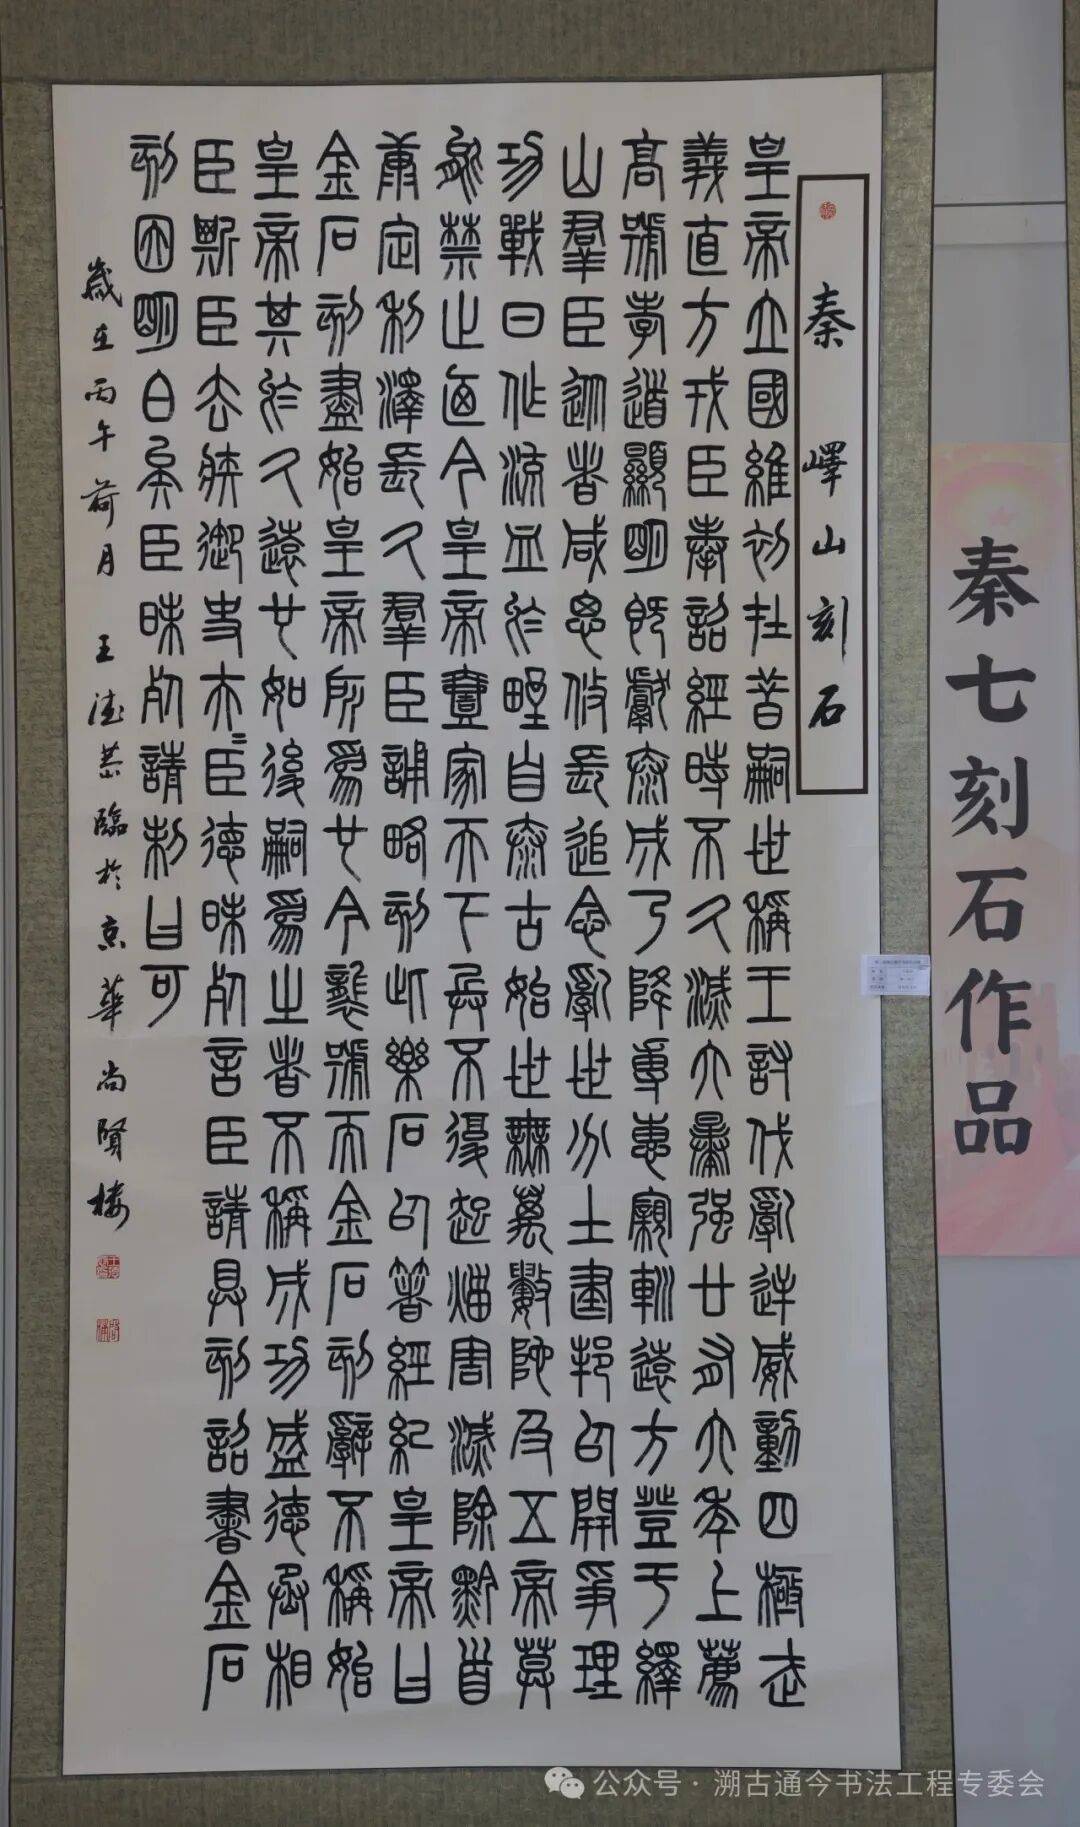 秦七刻石作品
秦嶧山刻石
皇帝立國維初在昔嗣世稱王討伐亂逆威動四極武
義直方戎臣奉詔經時不久滅六暴強廿有六年上薦
高號孝道顯明既獻泰成乃降專惠親巡遠方登于繹
山羣臣從者咸思攸長追念亂世分土建邦以開爭理
功戰日作流血於野自泰古始世無萬數陀及五帝莫
能禁止廼今皇帝壹家天下兵不復起災害滅除黔首
康定利澤長久羣臣誦略刻此樂石以著經紀皇帝曰
金石刻盡始皇帝所為也今襲號而金石刻辭不稱始
皇帝其於久遠也如後嗣為之者不稱成功盛德丞相
臣斯臣去疾御史夫臣德昧死言臣請具刻詔書金石
刻因明白矣臣昧死請制曰可
歲在丙午荷月 王德恭臨於京華尚賢樓
公众号·溯古通今书法工程专委会